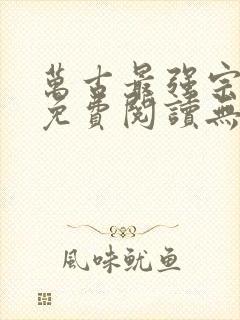 萬古最強宗
免費閱讀無
風味魷鱼